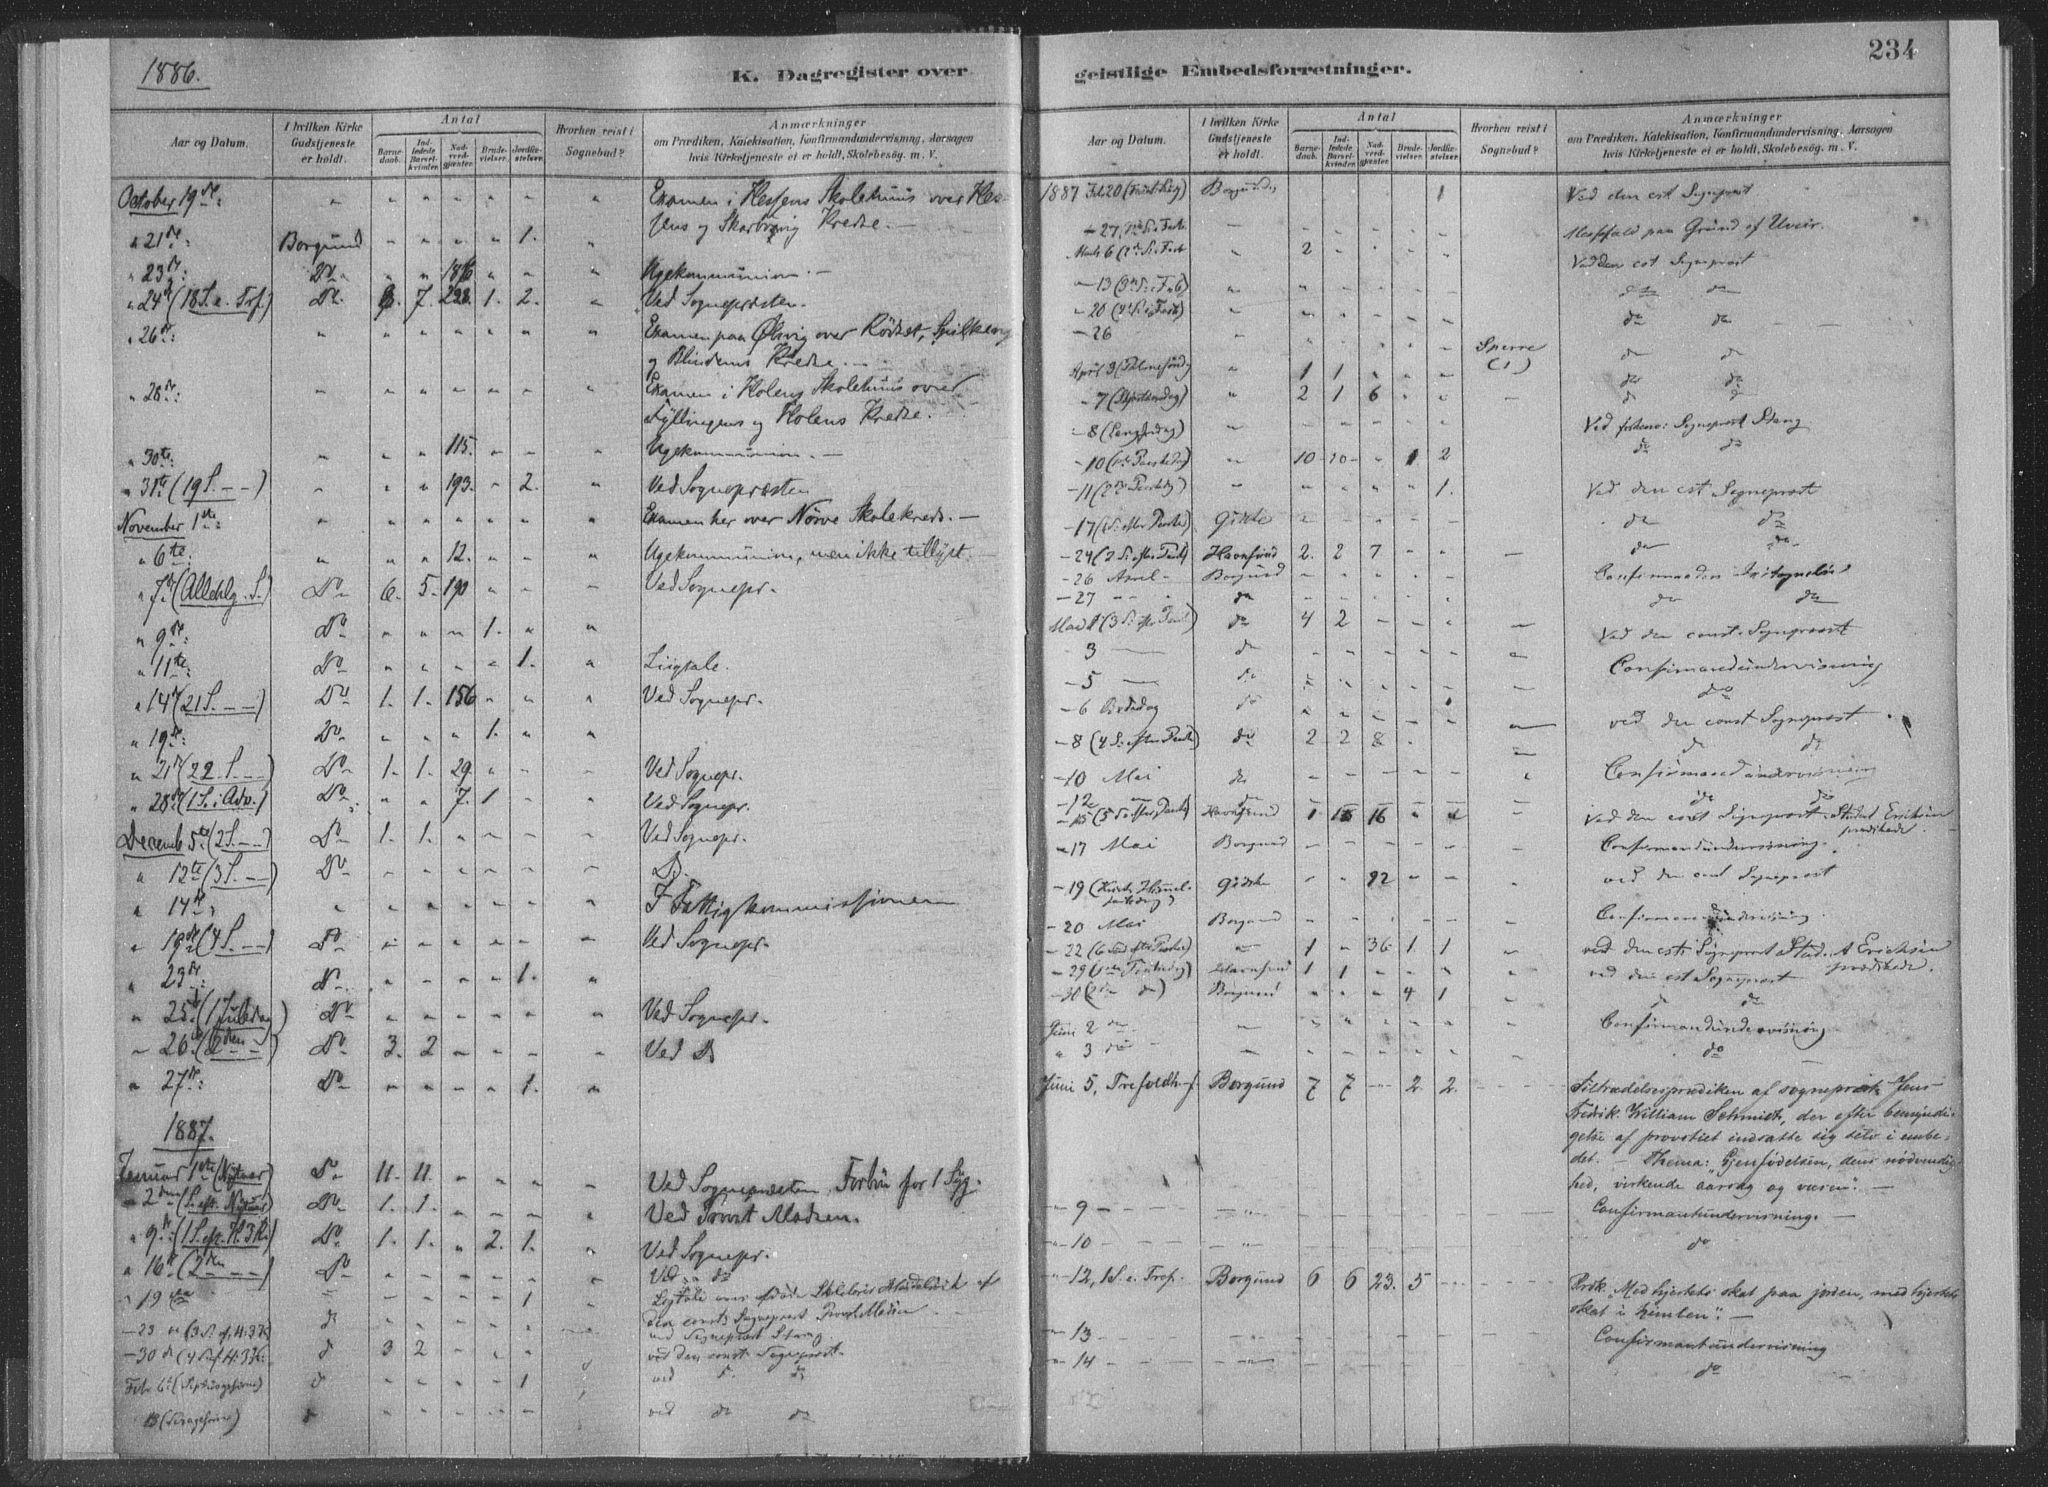 1886.
K. Dagregister over
Aar og Datum.
I hvilken Kirke Gudstjeneste er holdt.
Antal
Barnedaab.
Indledede Barselkvinder.
Nadverdgjæster.
Brudevielser.
Jordfæstelser.
Hvorhen reist i Sognebud?
Anmærkninger
om Prædiken, Katekisation, Konfirmandundervisning, Aarsagen
hvis Kirketjeneste ei er holdt, Skolebesøg. m. V.
October 19de: " " " " " " " Examen i Hessens Skolehuus over Hes-
sens og Skarbøvig Kredse. —
" 21de: Borgund " " " " 1. "
" 23de: Do " " " " " Ugekommunion. —
" 24de (18 S. e. Tref.) Do. 7. 1. 2. " Ved Sognepræsten.
" 26de: " " " " " " " Examen paa Ølvig over Rødset, Spilkevig
og Blindems Kredse. —
" 28de: " " " " " " " Examen i Holens Skolehuus over
Fyllingens og Holens Kredse.
" 30te: " " " 115. " " " Ugekommunion. —
" 31te (19 S. — —) " " " 193. " 2. " Ved Sognepræsten
November 1ste: " " " " " " " Examen her over Nörve Skolekreds. —
" 6te: " " " 12. " " " Ugekommunion, men ikke tillyst.
" 7de (Allehlg. S.) Do 6. 5. 190 " " " Ved Sognepr.
" 9de: Do " " " 1. " "
" 11te: Do " " " " 1. " Liigtale.
" 14de (21 S. — —) Do 1. 1. 156 " " " Ved Sognepr.
" 19de: Do " " " 1. " "
" 21de (22 S. — —) Do 1. 1. 29. " " " Ved Sognepr.
" 28de (1 S. i Adv.) Do " " 7. 1 " " Ved Sognepr.
Decemb 5te (2 S. — —) Do 1. 1. " " " " Ved Sognepr.
" 12te (3 S. — —) Do " " " " " " Do.
" 14de: " " " " " " " I Fattigkommissionen
" 19de (4 S. — —) Do " " " " " " Ved Sognepr.
" 23de: Do " " " " 1. "
" 25de (1 Juledag) Do " " " " " " Ved Sognepr.
" 26de (2den — —) Do 3. 2 " " " " Ved Do
" 27de: Do " " " " 1. "
1887.
Januar 1ste (Nytaar) Do 11. 11. " " " " Ved Sognepræsten. Forbön for 1 Syg.
— 2den (S. eft. Nytaar) Do 1. 1. " " " " Ved Provst Madsen.
" 9de (1 S. eft. H. 3 K.) Do 1. 1. " 2. 1. " Ved Sognepr.
" 16de (2den — —) Do " " " " " " Ved " do
" 19 " " " " " 1 "
den const Sognepræst Provst Madsen
— 23 (3 S. ef. H: 3 K) do " " " " " " ved Sognepræst Stang
— 30 (4 S. ef. H: 3 K: do 3 2 " " " ved den const Sognepræst.
Febr 6te (Septuagesima) do " " " " 1 ved do. do
13 (Sexagesima) do " " " " ved do do
234
geistlige Embedsforretninger.
Aar og Datum.
I hvilken Kirke Gudstjeneste er holdt.
Antal
Barnedaab.
Indledede Barselkvinder.
Nadverdgjæster.
Brudevielser.
Jordfæstelser.
Hvorhen reist i Sognebud?
Anmærkninger
om Prædiken, Katekisation, Konfirmandundervisning, Aarsagen
hvis Kirketjeneste ei er holdt, Skolebesøg. m. V.
1887 Feb 20 Borgund 1 Ved den cst Sognepræst
— 27 Messefald paa Grund af Uveir.
Marts 6 2 Ved den cst Sognepræst
— 13 do do
— 20 do do
— 26 Sperre (1) do do
April 3 (Palmesöndg) 1 1 do do
" 7 (Skjærtorsdag) 2 1 6 do do
— 8 (Langfredag) Ved Sognepræst Stang
— 10 (1ste Paaskedag) 10 10 1 2 do do
— 11 (2den Paaskdg) 1. Ved den cst Sognepræst
— 17 (1 S. efter Paaske) Gidske do do
— 24 (2 S. efter Paask) Havnsund 2. 2 7 do do
— 26 April Borgund Confirmanden
— 27 do do do
Mai 1 (3 S. efter Paask) do 4 2 Ved den const. Sognepræst
— 3 do Confirmandundervisning
— 5 do do
— 6 Bededag do ved den const Sognepræst
— 8 (4 S. efter Paaske) do 2 2 8 do do
— 10 Mai do Confirmandundervisning
— 12 do do do
— 15 (5 S. efter Paaske) Havnsund 1 16 Ved den const Sognepræst. Student Eriksen
prædikede.
— 17 Mai Borgund Confirmandundervisning.
— 19 (Kristi Himmel-
fartsdag) Gidske 92 ved den const Sognepræst
— 20 Mai Borgund Confirmandundervisning.
— 22 (6 Sönd efter Paaske) " 1 " 36 1 1 ved den cst Sognepræst Stud. A Erichsen
prædikede.
— 29 (1ste Pintsedag) Havnsund 1 1 ved den cst Sognepræst
— 30 (2den do) Borgund 4 1 do do
Juni 2 Confirmandundervisning
" 3 do
Juni 5, Trefoldh. f. Borgund 7 7 2. 2. Tiltrædelsesprædiken af sognepræst Jens
Fredrik William Schmidt, der efter bemyndi-
gelse af provstiet indsatte sig selv i embe-
det. — Thema: "Gjenfödelsen, dens nödvendig-
hed, virkende aarsag og væsen". —
" 9 — Confirmantundervisning. —
" 10 — do
" 12, 1 S. e. Tref. Borgund 6 6 23. 5 Præk. "Med hjertets skat paa jorden, med hjertets
skat i himlen". —
" 13 — Confirmantundervisning
" 14 — do